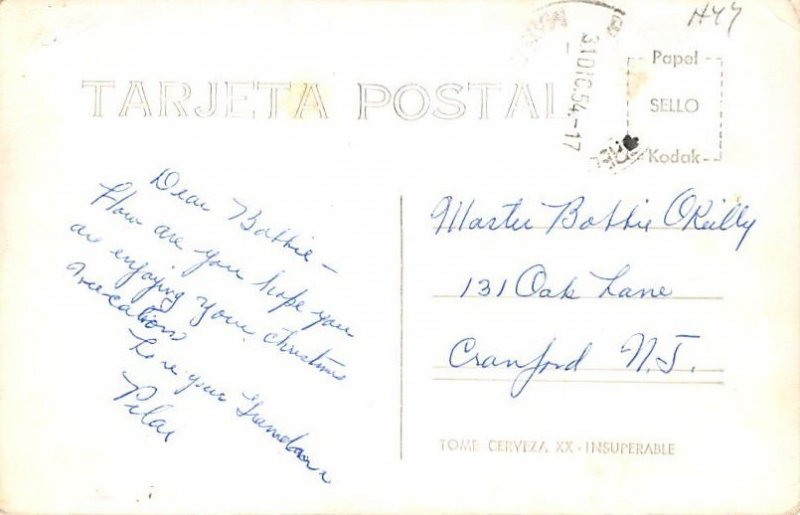 H47
31 DIC. 54. - 17
TARJETA POSTAL
Papel
SELLO
Kodak
Dear Bobbie –
How are you hope you
are enjoying your christmas
Love your
Pilar
Master Bobbie OReilly
131 Oak Lane
Cranford N.J.
TOME CERVEZA XX - INSUPERABLE